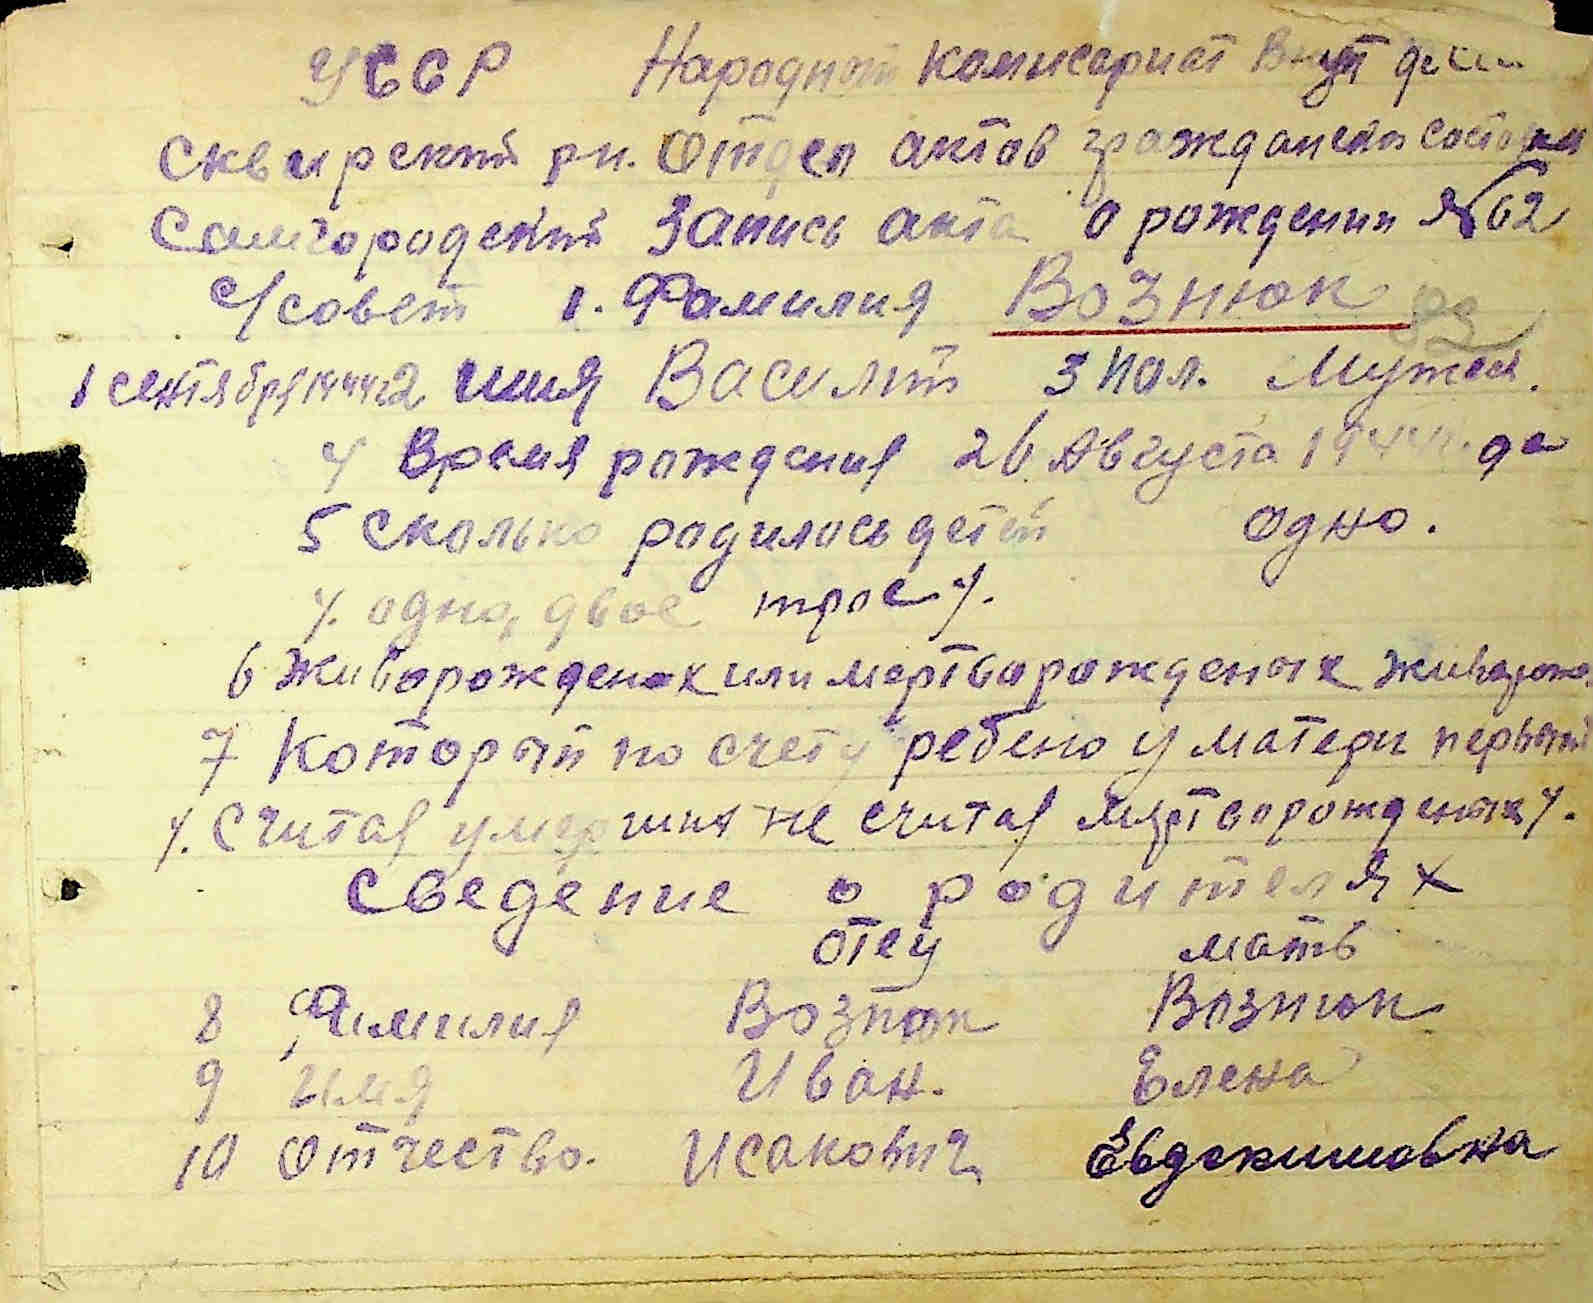 УССР Народный комисариат Внут дел
Сквирский рн. Отдел актов гражданского состояния
Самгородский Запись акта о рождении №62
С/совет 1. Фамилия Вознюк
1 сентября 1944 2 имя Василий 3 пол. Мужской.
4 Время рождения 26 Августа 1944
5 Сколько родилось детей одно.
/. одно, двое трое /.
6 Живорожденых или мертворожденых живорожд
7 Который по счету ребено у матери первый
/. Считая умерших не считая мертворожденых /.
Сведение о родителях
отец мать
8 Фамилия Вознюк Вознюк
9 имя Иван. Елена
10 Отчество. Исакович Евдокимовна